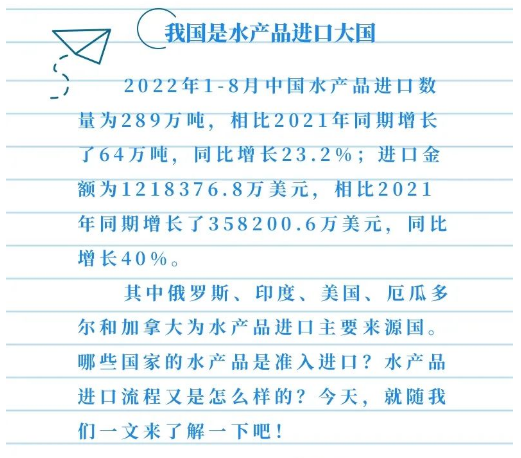 我国是水产品进口大国
2022年1-8月中国水产品进口数
量为289万吨，相比2021年同期增长
了64万吨，同比增长23.2%；进口金
额为1218376.8万美元，相比2021
年同期增长了358200.6万美元，同比
增长40%。
其中俄罗斯、印度、美国、厄瓜多
尔和加拿大为水产品进口主要来源国。
哪些国家的水产品是准入进口？水产品
进口流程又是怎么样的？今天，就随我
们一文来了解一下吧！